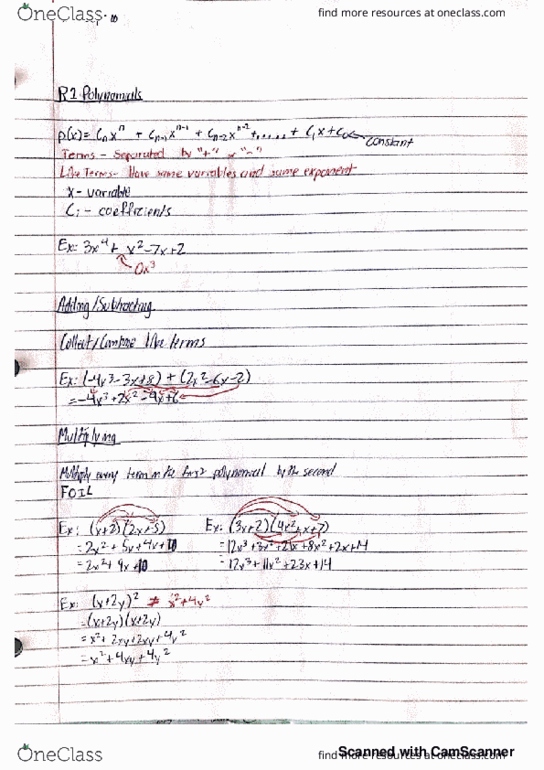 OneClass
find more resources at oneclass.com
R1 Polynomials
p(x) = Cₙxⁿ + Cₙ₋₁xⁿ⁻¹ + Cₙ₋₂xⁿ⁻² + ..... + C₁x + C₀ ← constant
Terms - Separated by "+" or "-"
Like Terms - Have same variables and same exponent
x - variable
Cᵢ - coefficients
Ex: 3x⁴ + x² - 7x + 2
0x³
Adding/Subtracting
Collect/Combine like terms
Ex: (-4x³ - 3x + 8) + (2x² - 6x - 2)
= -4x³ + 2x² - 9x + 6
Multiplying
Multiply every term in the first polynomial by the second
FOIL
Ex: (x+2)(2x+5)
= 2x² + 5x + 4x + 10
= 2x² + 9x + 10
Ex: (3x+2)(4x²+x+7)
= 12x³ + 3x² + 21x + 8x² + 2x + 14
= 12x³ + 11x² + 23x + 14
Ex: (x+2y)² ≠ x² + 4y²
= (x+2y)(x+2y)
= x² + 2xy + 2xy + 4y²
= x² + 4xy + 4y²
OneClass
find more resources at oneclass.com
Scanned with CamScanner